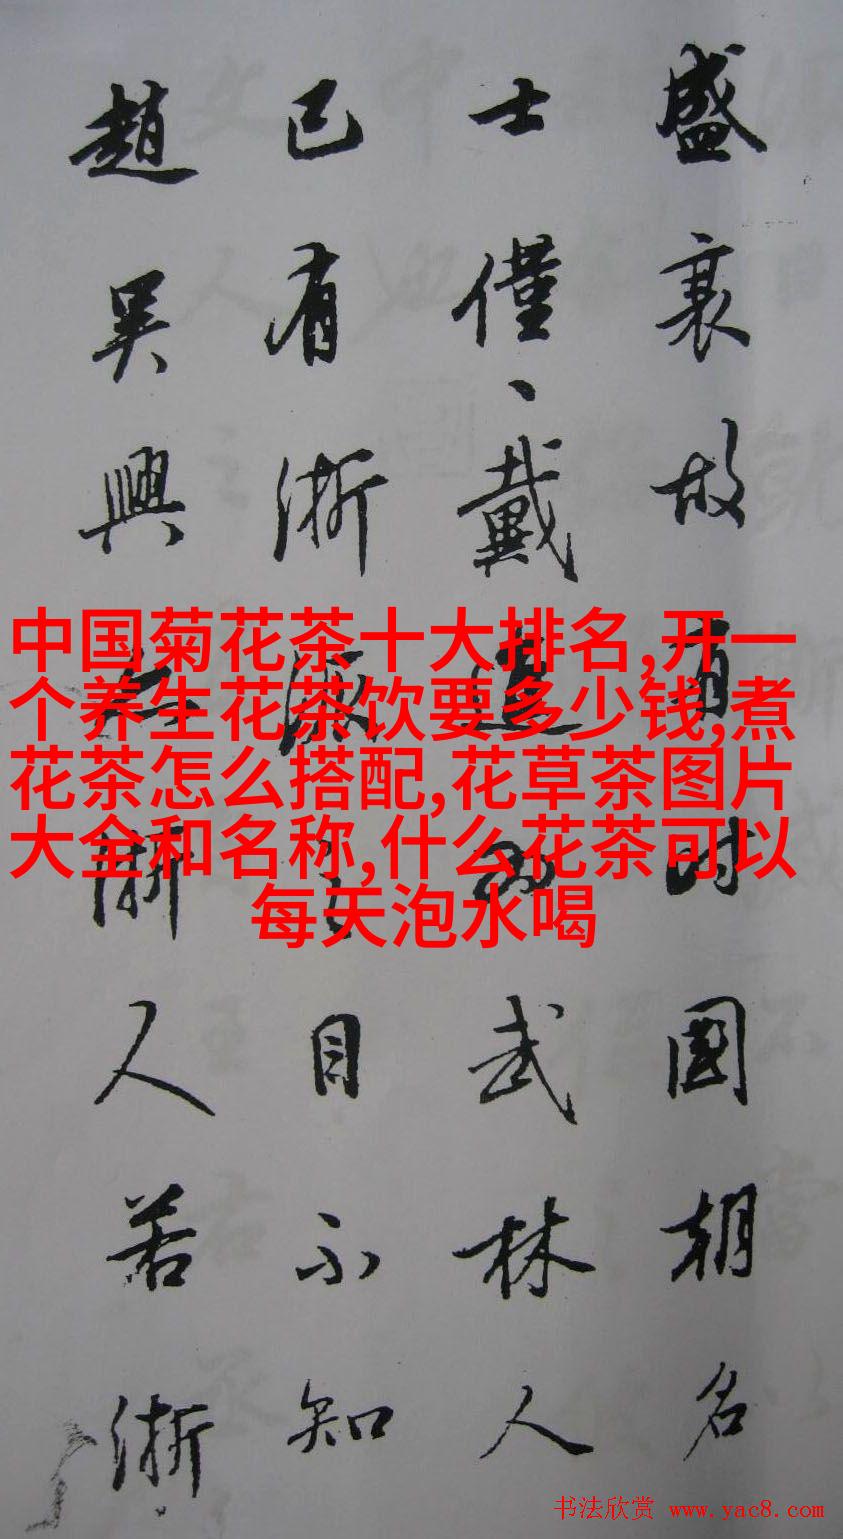 盛衰故有时國朝名
士僅、戴進為武林人
已有浙派之目不知
趙吳興亦浙人若浙
中国菊花茶十大排名,开一
个养生花茶饮要多少钱,煮
花茶怎么搭配,花草茶图片
大全和名称,什么花茶可以
每天泡水喝
书法欣赏 www.yac8.com